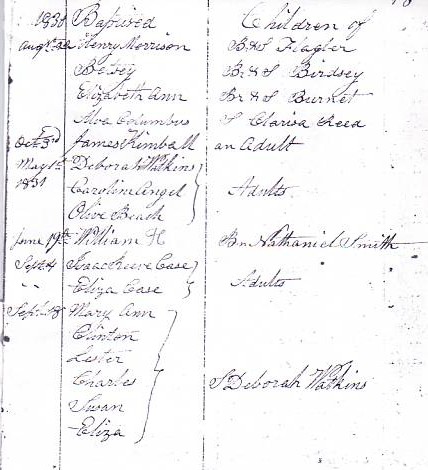 1830 Baptised Children of
Augt 22 Henry Morrison B & S Flagler
Betsey Br. & S Birdsey
Elizabeth Ann Br & S Burnet
Alva Columbus S Clarisa Reed
Oct 3rd James Kimball an Adult
May 1st Deborah Watkins
1831 Caroline Angel Adults
Olive Beach
June 19th William H Br Nathaniel Smith
Sept 4 Isaac Reeve Case Adults
" " Eliza Case
Sept 18 Mary Ann
Clinton
Lester
Charles S Deborah Watkins
Swan
Eliza